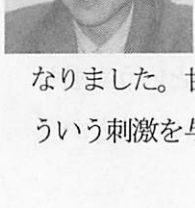 なりました。
ういう刺激を